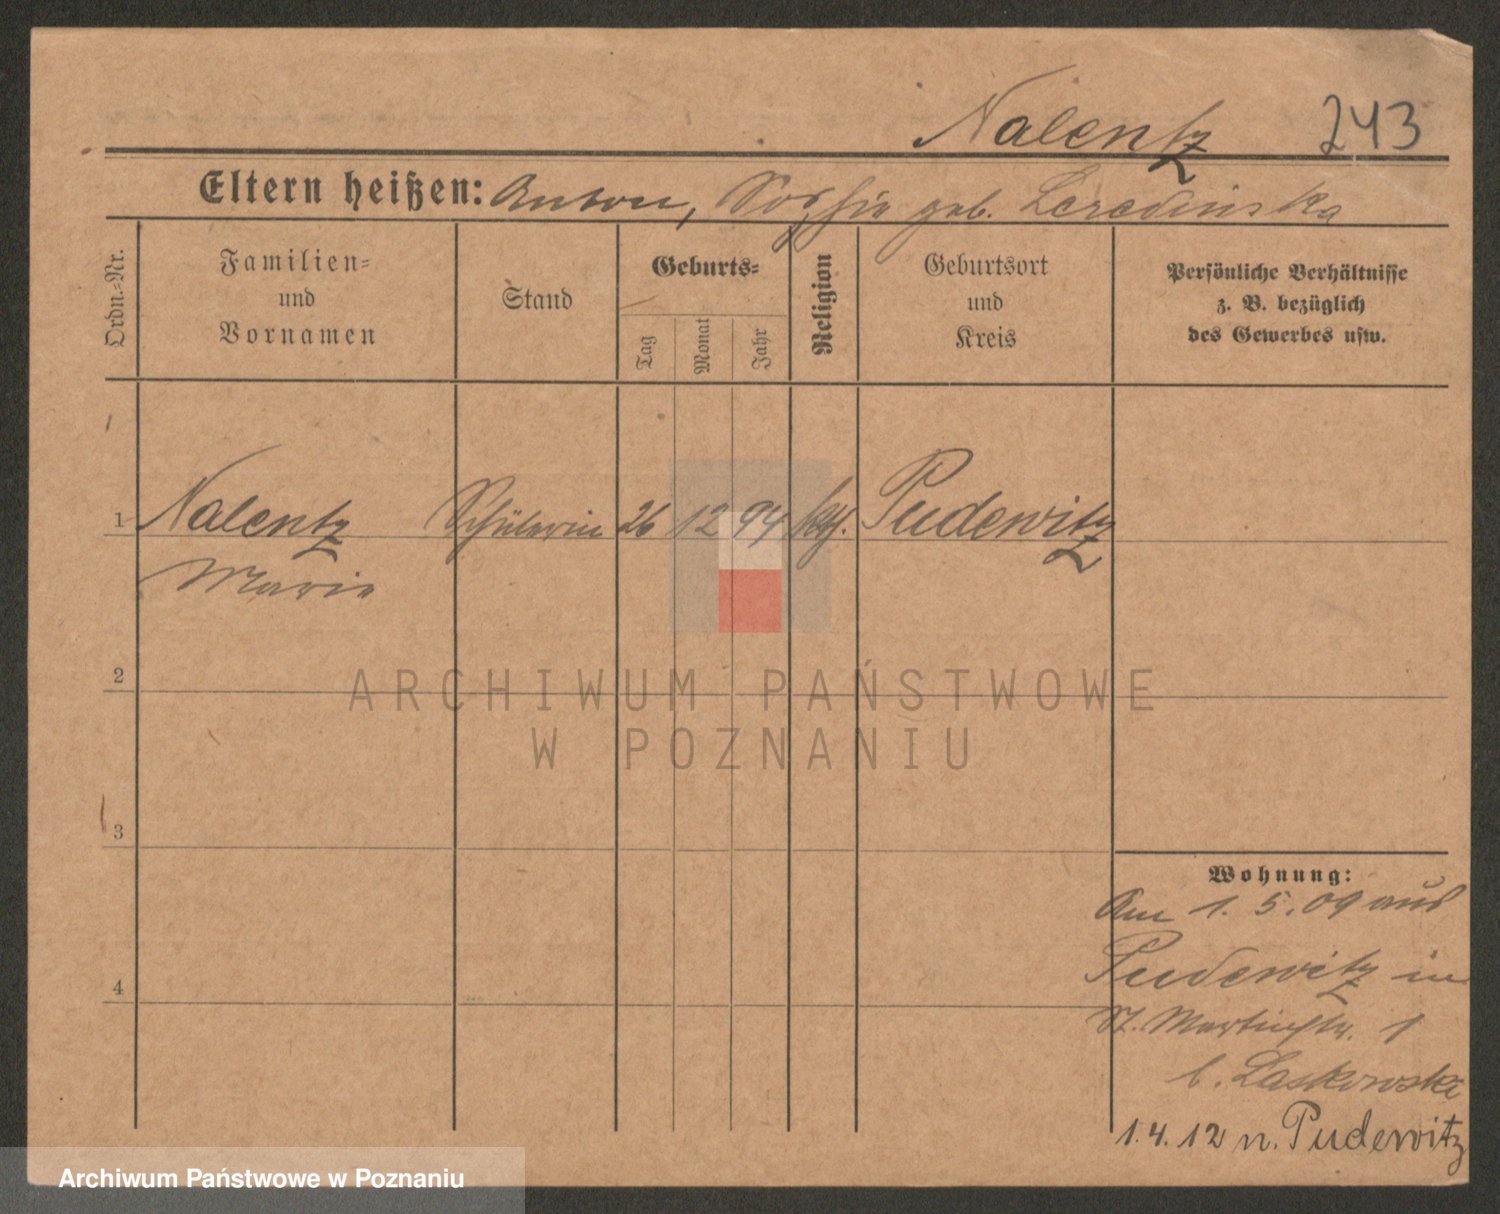 Nalentz 243
Eltern heißen: Anton, Sophie geb. Leredinska
Ordn.-Nr.
Familien-
und
Vornamen
Stand
Geburts-
Tag
Monat
Jahr
Religion
Geburtsort
und
Kreis
Persönliche Verhältnisse
z. B. bezüglich
des Gewerbes usw.
1 Nalentz Schülerin 26 12 94 kth. Pudewitz
Marie
2
ARCHIWUM PAŃSTWOWE
W POZNANIU
3
Wohnung:
Am 1. 5. 09 aus
Pudewitz in
4
St. Martinstr. 1
b. Laskowski
1. 4. 12 n. Pudewitz
Archiwum Państwowe w Poznaniu